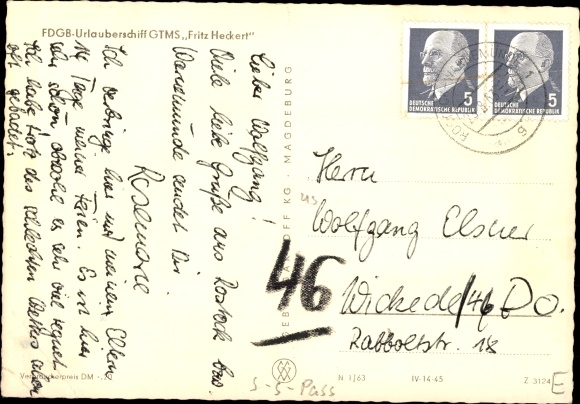 FDGB-Urlauberschiff GTMS „Fritz Heckert"
Lieber Wolfgang!
Viele liebe Grüße aus Rostock bzw.
Warnemünde sendet Dir
Rosemarie
Ich verbringe hier mit meinen Eltern
14 Tage meiner Ferien. Es ist hier
sehr schön, obwohl es sehr viel regnet.
Ich habe trotz des schlechten Wetters schon
oft gebadet.
MAGDEBURG
5
DEUTSCHE
DEMOKRATISCHE REPUBLIK
5
DEUTSCHE
DEMOKRATISCHE REPUBLIK
Herrn
Wolfgang Elsner
46
Wickede/46 Do.
Rabboltstr. 18
Verbraucherpreis DM
N 1/63
IV-14-45
Z 3124
E
S-S-Pass